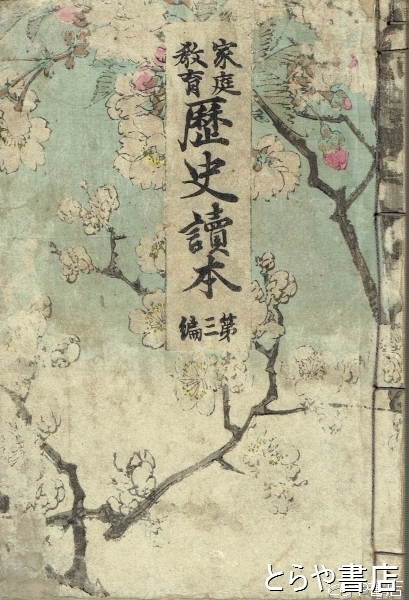 家庭
教育
歴史讀本
第三編
とらや書店